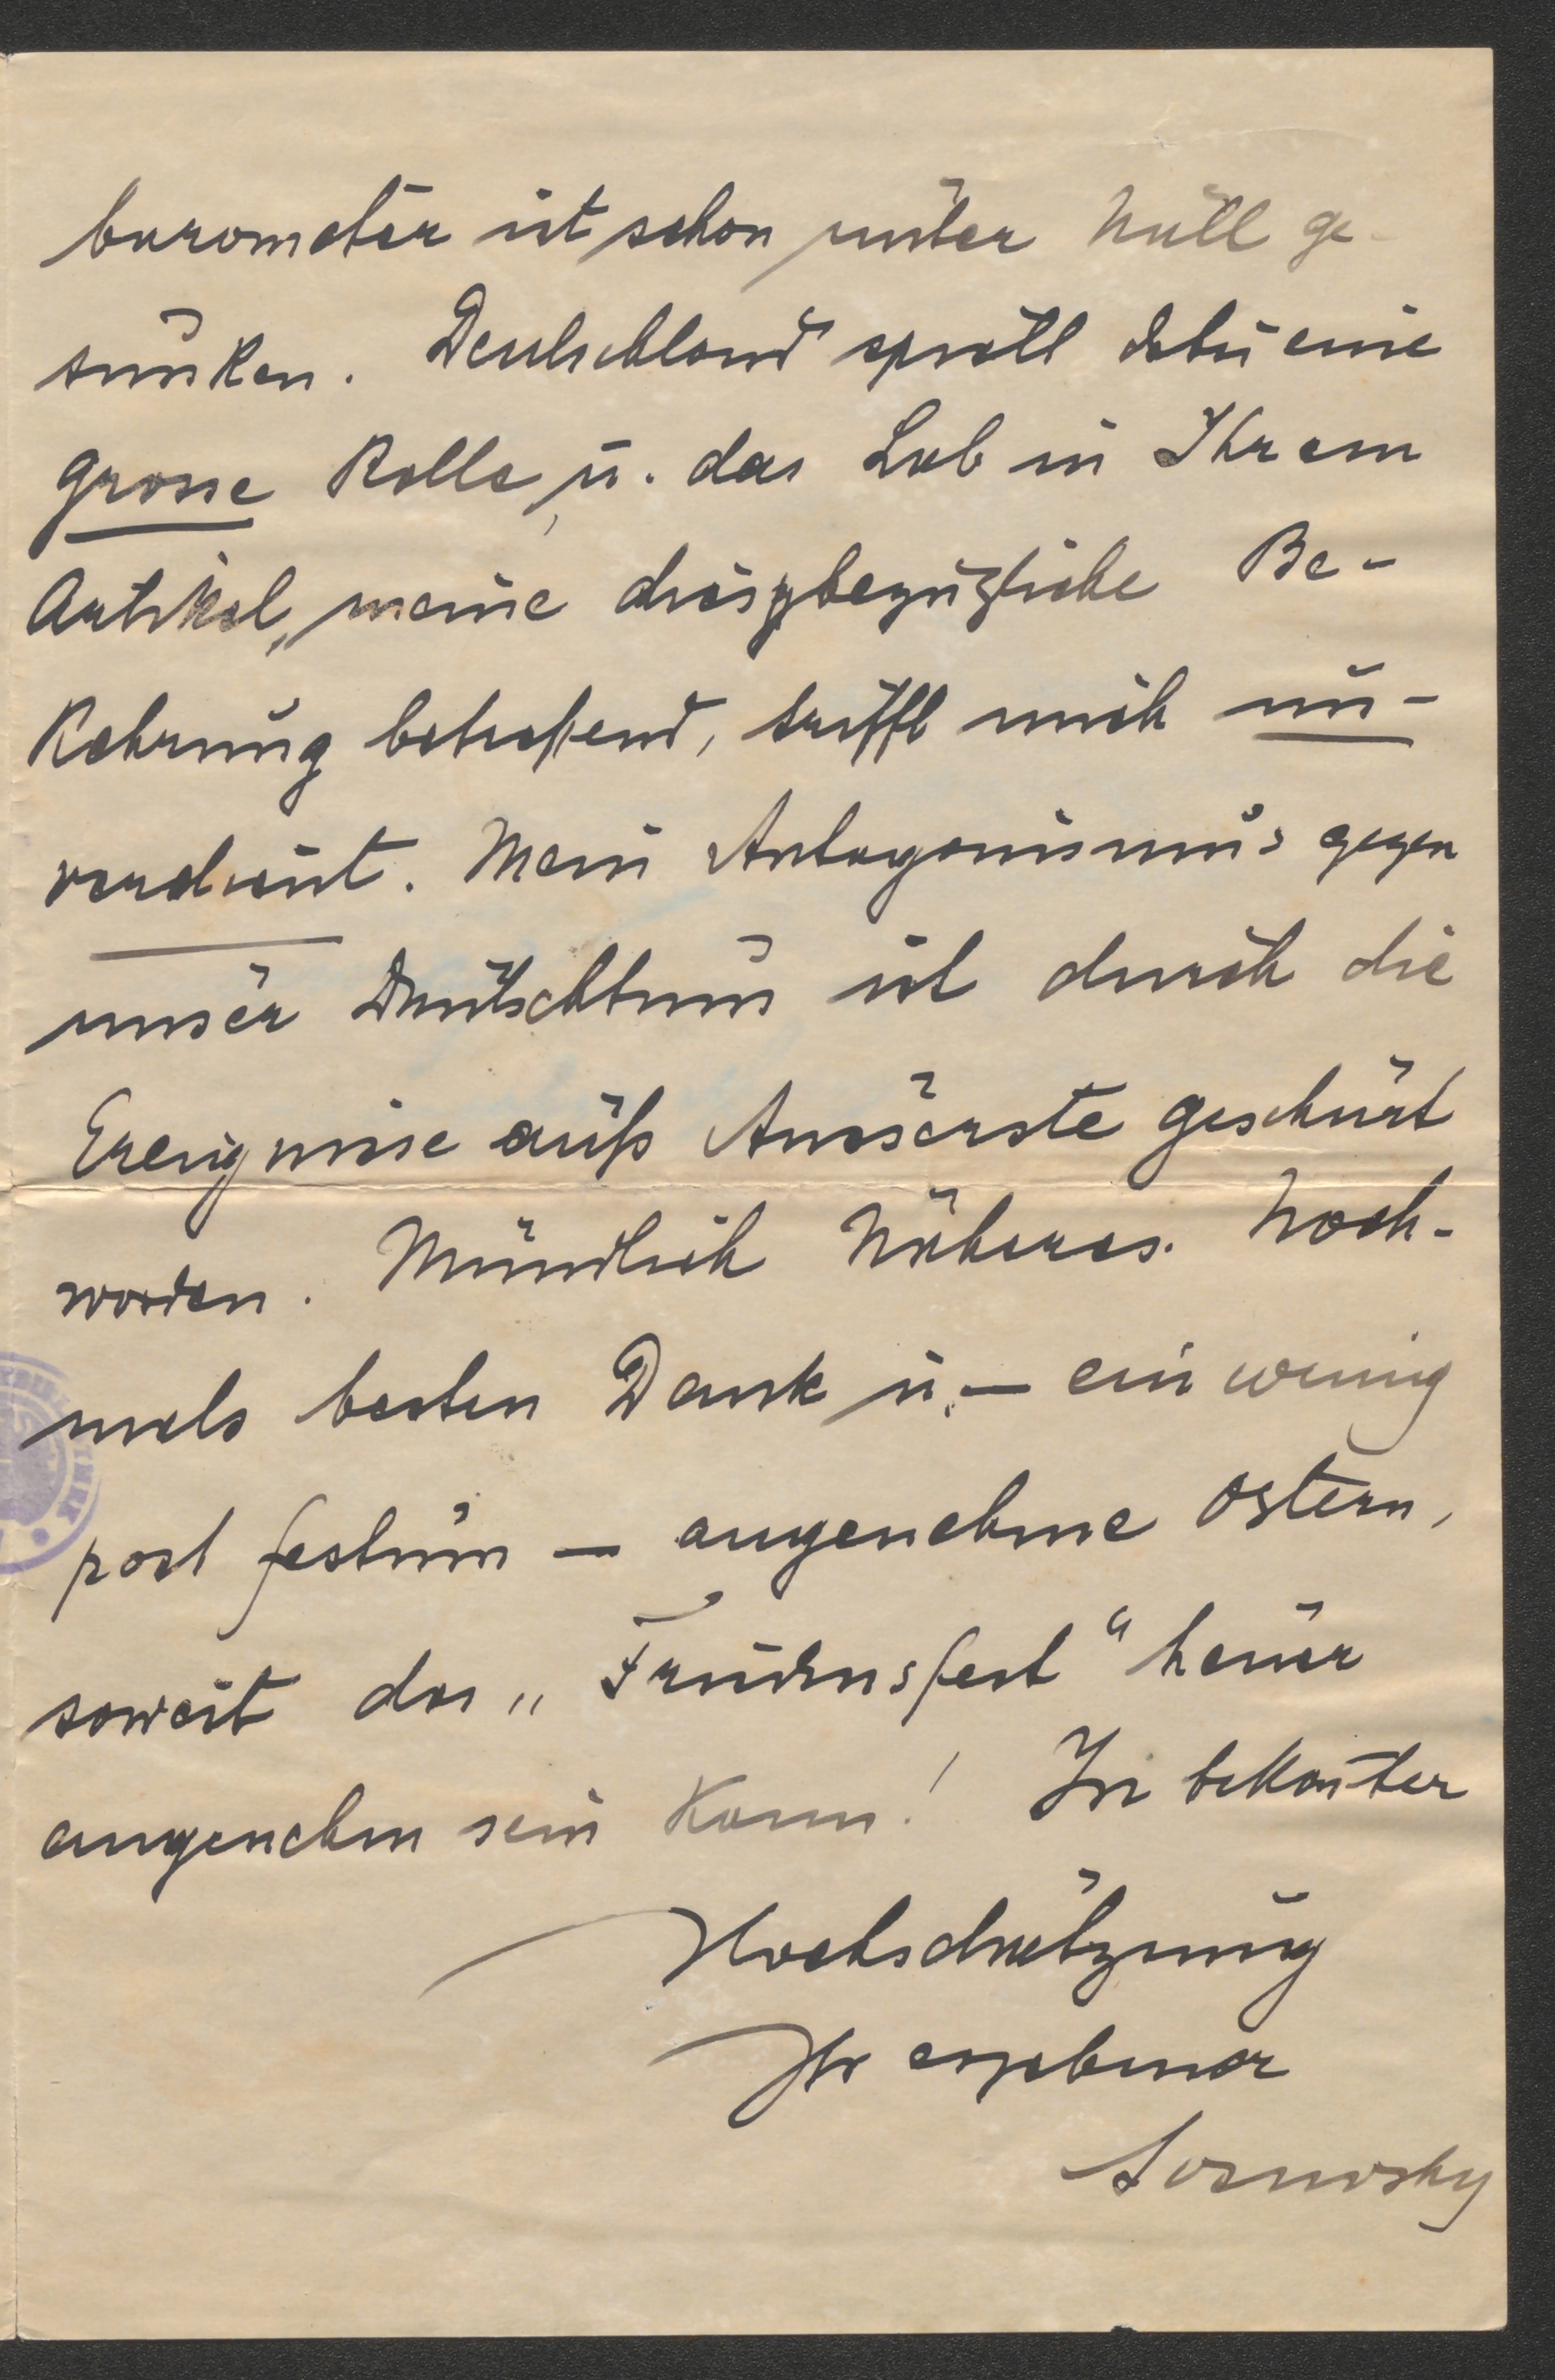 barometer ist schon unter Null ge-
sunken. Deutschland spielt dabei eine
grosse Rolle, u. das Lob in Ihrem
Artikel, meine diesbezügliche Be-
kehrung betreffend, trifft mich un-
verdient. Mein Antagonismus gegen
unser Deutschtum ist durch die
Ereignisse aufs Ausserste geschürt
worden. Mündlich Näheres. Noch-
mals besten Dank u. — ein wenig
post festum — angenehme Ostern,
soweit das „Friedensfest“ heuer
angenehm sein kann! In bekannter
Hochschätzung
Ihr ergebener
Sosnosky